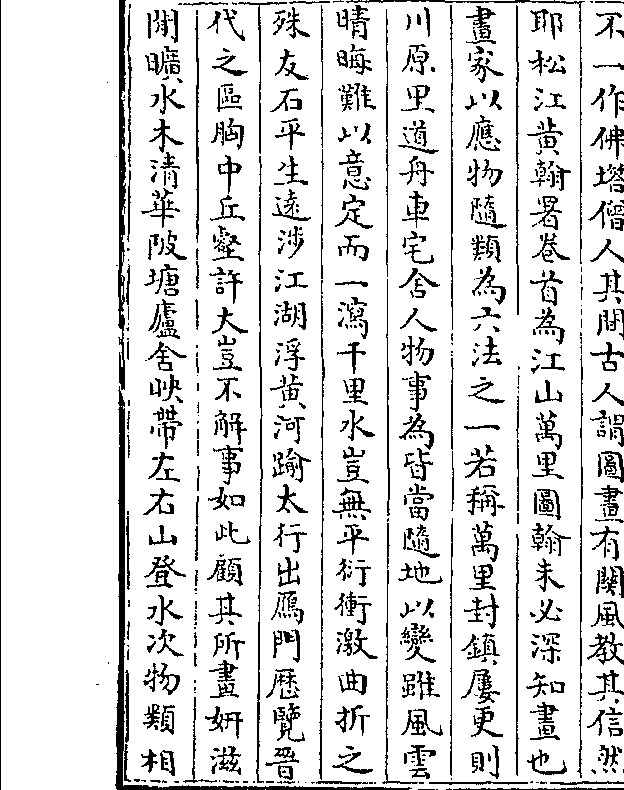 不一作佛塔僧人其間古人謂圖畫有關風教其信然
耶松江黃翰署卷首為江山萬里圖翰未必深知畫也
畫家以應物隨類為六法之一若稱萬里封鎮屢更則
川原里道舟車宅舍人物事為皆當隨地以變雖風雲
晴晦難以意定而一瀉千里水豈無平衍衝激曲折之
殊友石平生遠涉江湖浮黃河踰太行出鴈門歷覽晉
代之區胸中丘壑許大豈不解事如此顧其所畫妍滋
閒曠水木清華陂塘廬舍映帶左右山登水次物類相